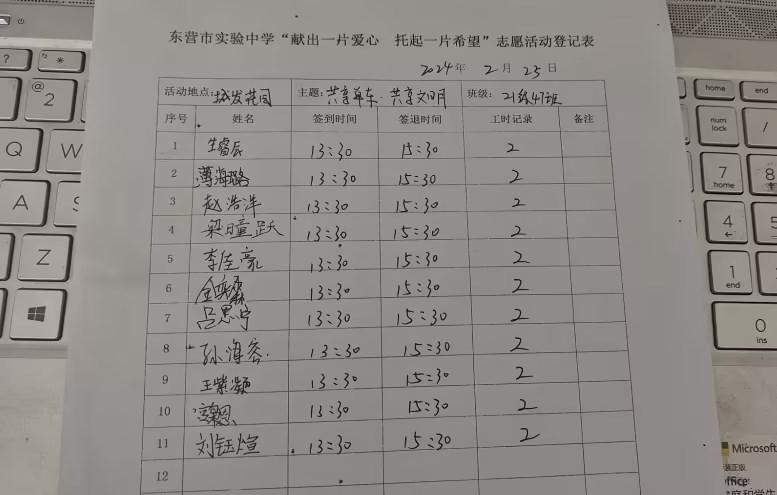 东营市实验中学“献出一片爱心 托起一片希望”志愿活动登记表
2024年 2月 25日
活动地点: 城发花园 主题: 共享单车·共享文明 班级: 21级47班
序号 姓名 签到时间 签退时间 工时记录 备注
1 生睿辰 13:30 15:30 2
2 薄海璐 13:30 15:30 2
3 赵浩洋 13:30 15:30 2
4 梁曈跃 13:30 15:30 2
5 李佳豪 13:30 15:30 2
6 13:30 15:30 2
7 吕思宁 13:30 15:30 2
8 孙海容 13:30 15:30 2
9 王紫凝 13:30 15:30 2
10 13:30 15:30 2
11 刘钰煊 13:30 15:30 2
12
?
@
2
Q
W
A
S
Z
home
end
num
lock
/
7
home
8
4
5
1
end
0
ins
Microsoft